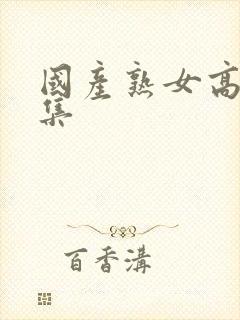 國產熟女高
集
百香溝